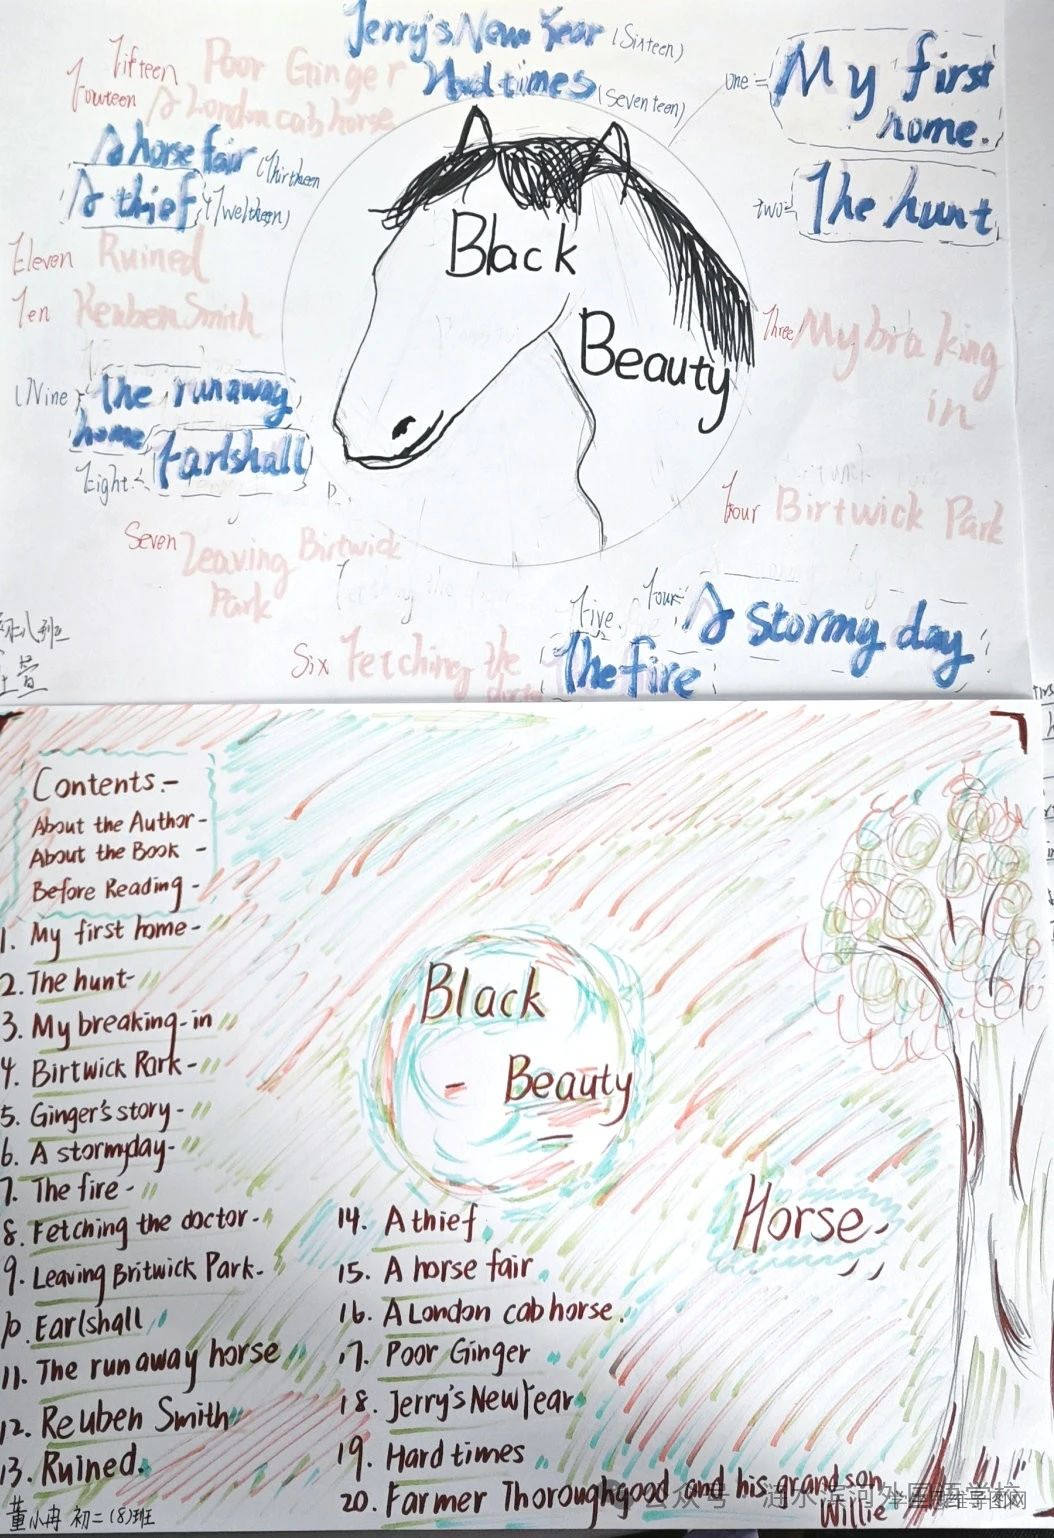 Jerry's New Year (Sixteen)
Hard times (Seventeen)
Fifteen Poor Ginger
Fourteen A London cab horse
A horse fair (Thirtheen
A thief (Tweltheen)
Eleven Ruined
Ten Reuben Smith
(Nine the runaway
home
Eight Earlshall
Seven Leaving Birtwick
Park
Six Fetching the
doctor
Five The fire
four A stormy day
Four Birtwick Park
Three My breaking
in
two The hunt
one My first
home.
Black
Beauty
Contents:-
About the Author-
About the Book -
Before Reading -
1. My first home-
2. The hunt-
3. My breaking-in
4. Birtwick Park-
5. Ginger's story-
6. A stormyday-
7. The fire-
8. Fetching the doctor-
9. Leaving Britwick Park-
10. Earlshall
11. The runaway horse
12. Reuben Smith
13. Ruined.
14. A thief
15. A horse fair
16. A London cab horse.
17. Poor Ginger
18. Jerry's New Year
19. Hard times
20. Farmer Thoroughgood and his grandson
Willie
Black
Beauty
Horse
董小冉 初二(8)班